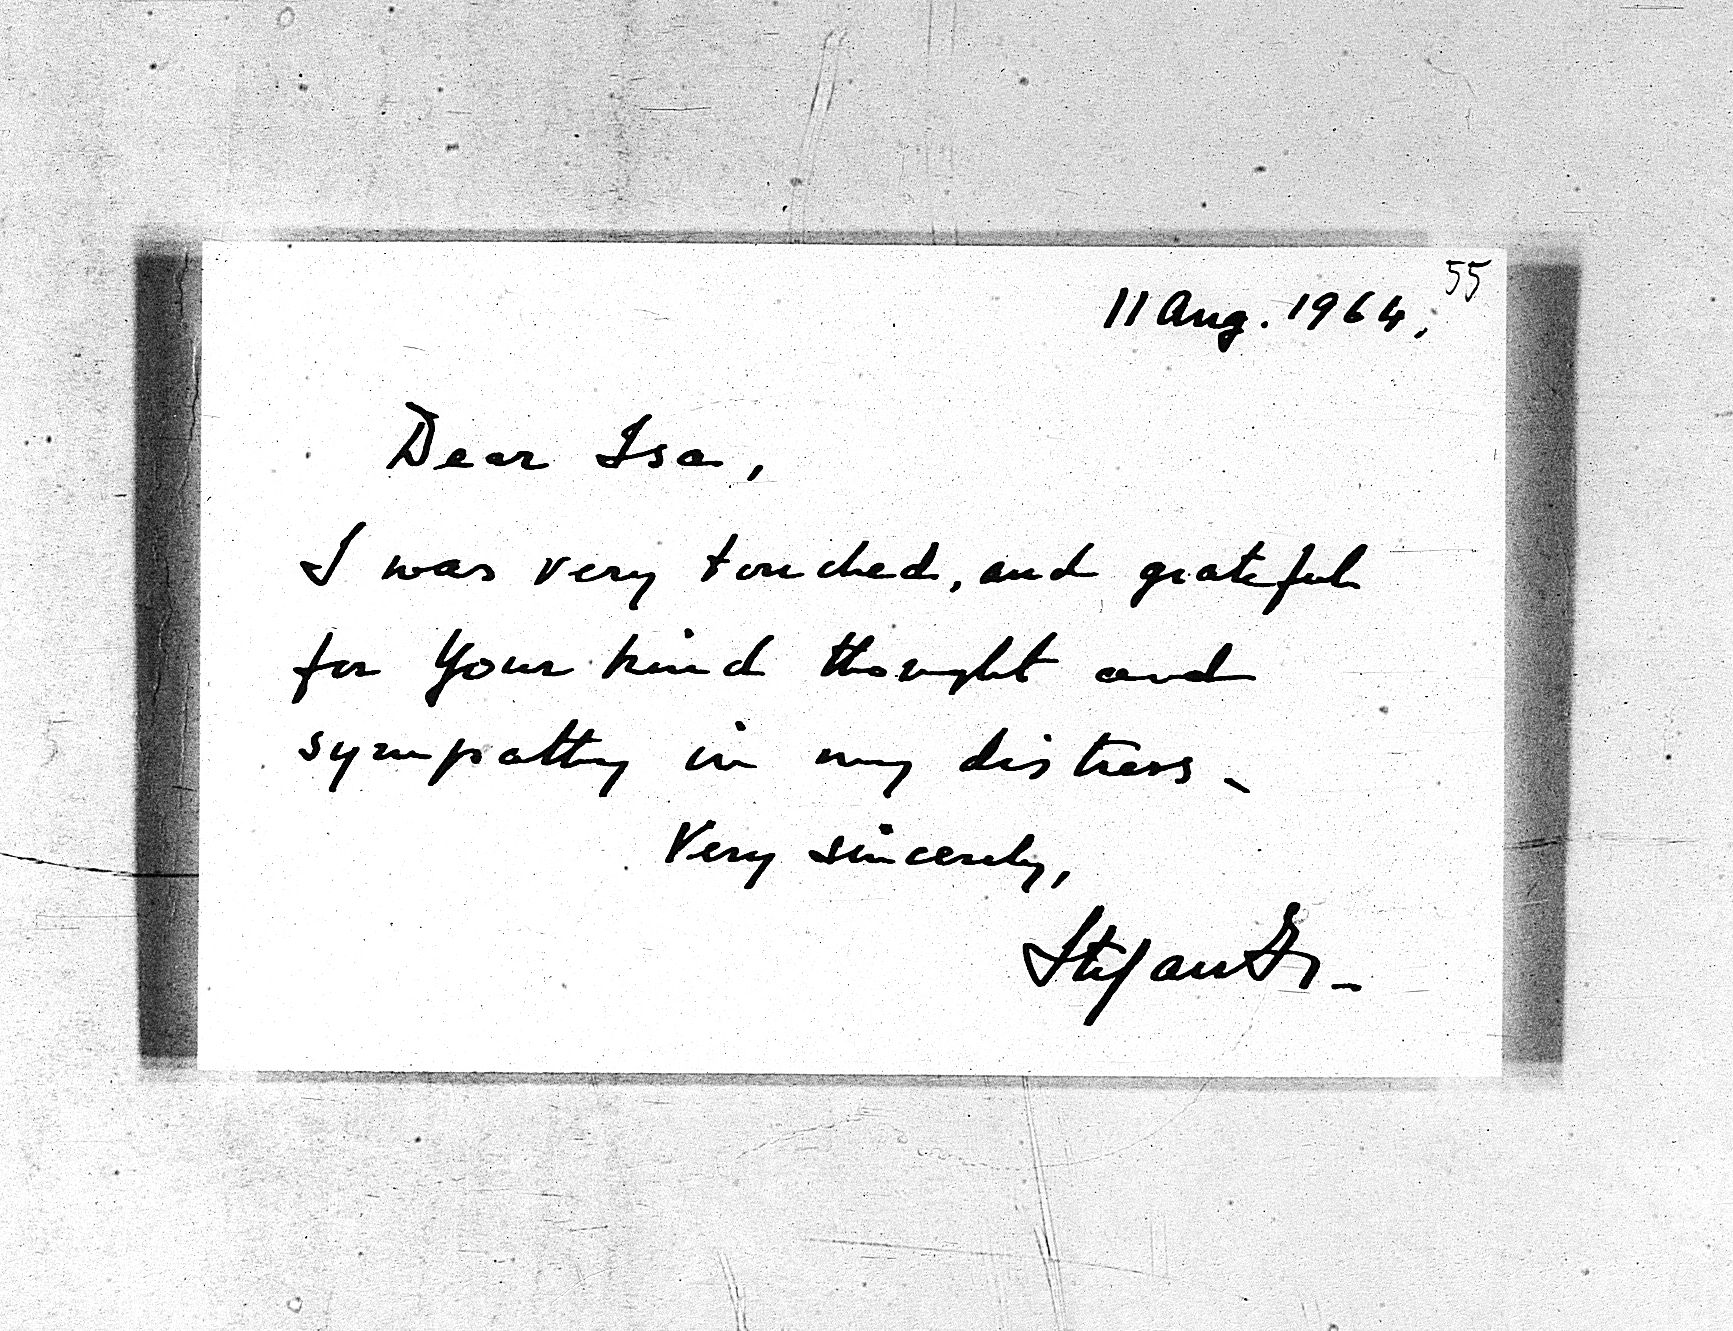 55
11 Aug. 1964,
Dear Isa,
I was very touched, and grateful
for your kind thought and
sympathy in my distress -
Very sincerely,
Stefan